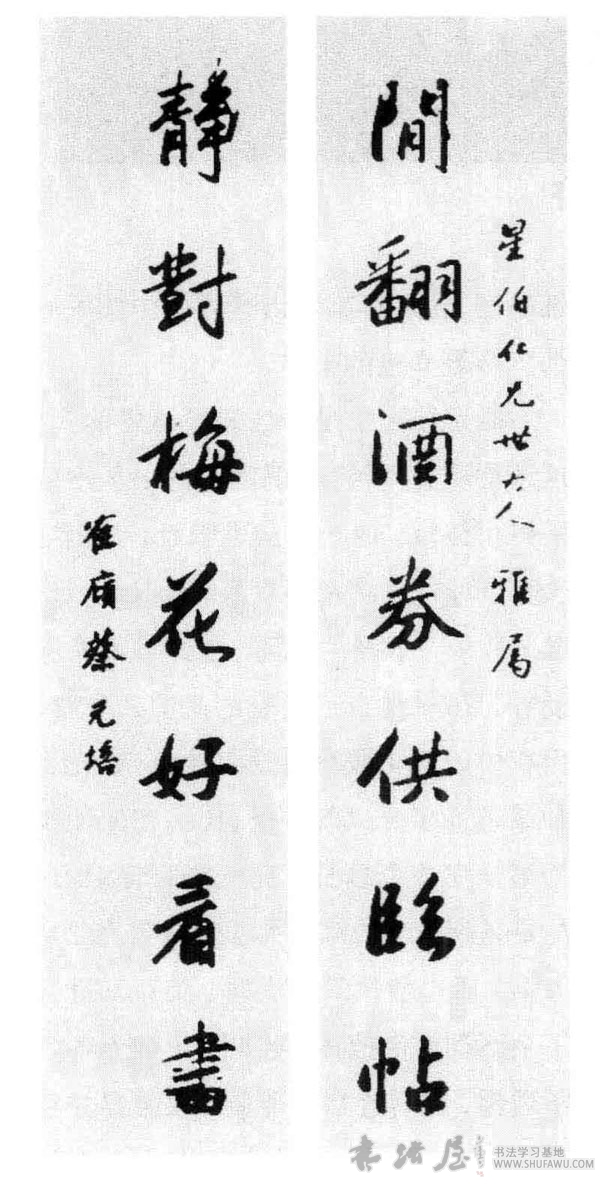 星伯仁兄世大人雅属
閒翻酒券供臨帖
靜對梅花好看書
崔㢘蔡元培
书法屋
书法学习基地
WWW.SHUFAWU.COM